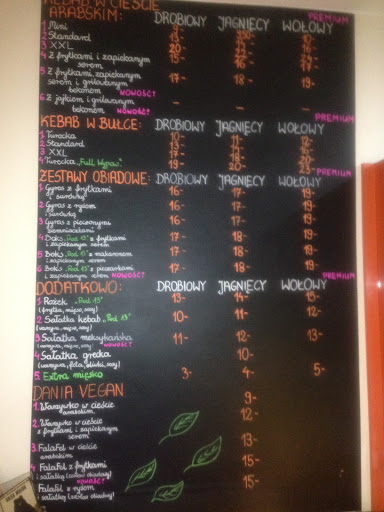 KEBAB W CIEŚCIE
ARABSKIM: DROBIOWY JAGNIĘCY WOŁOWY PREMIUM
1 Mini
2 Standard
3 XXL 20-
4 Z frytkami i zapiekanym
serem 15- 16- 17-
5 Z frytkami, zapiekanym
serem i grillowanym
bekonem NOWOŚĆ! 17- 18- 19-
6 Z jajkiem i grillowanym
bekonem NOWOŚĆ! - - -
KEBAB W BUŁCE: DROBIOWY JAGNIĘCY WOŁOWY PREMIUM
1 Turecka 11-
2 Standard 13-
3 XXL
4 Turecka „Full Wypas" 19- 20-
ZESTAWY OBIADOWE: DROBIOWY JAGNIĘCY WOŁOWY PREMIUM
1 Gyros z frytkami
i surówką 16- 17- 19-
2 Gyros z ryżem
i surówką 16- 17- 19-
3 Gyros z pieczonymi
ziemniaczkami 16- 17- 19-
4 Boks „Pod 15" z frytkami
i zapiekanym serem 17- 18- 19-
5 Boks „Pod 15" z makaronem
i zapiekanym serem 17- 18- 19-
6 Boks „Pod 15" z pieczarkami
i zapiekanym serem NOWOŚĆ! 17- 18- 19-
DODATKOWO: DROBIOWY JAGNIĘCY WOŁOWY PREMIUM
1 Rożek „Pod 15" 13- 14- 15-
(frytki, mięso, sosy)
2 Sałatka kebab „Pod 15" 10- 11- 12-
(warzywa, mięso, sosy)
3 Sałatka meksykańska 11- 12- 13-
(warzywa, mięso, sosy) NOWOŚĆ!
4 Sałatka grecka 10-
(warzywa, feta, oliwki, sosy)
5. Extra mięsko 3- 4- 5-
DANIA VEGAN
1. Warzywko w cieście 9-
arabskim
2. Warzywko w cieście 12-
z frytkami i zapiekanym
serem
3. Falafel w cieście 13-
arabskim
4 Falafel z frytkami 15-
i sałatką (zestaw obiadowy)
NOWOŚĆ!
Falafel z ryżem 15-
i sałatką (zestaw obiadowy)